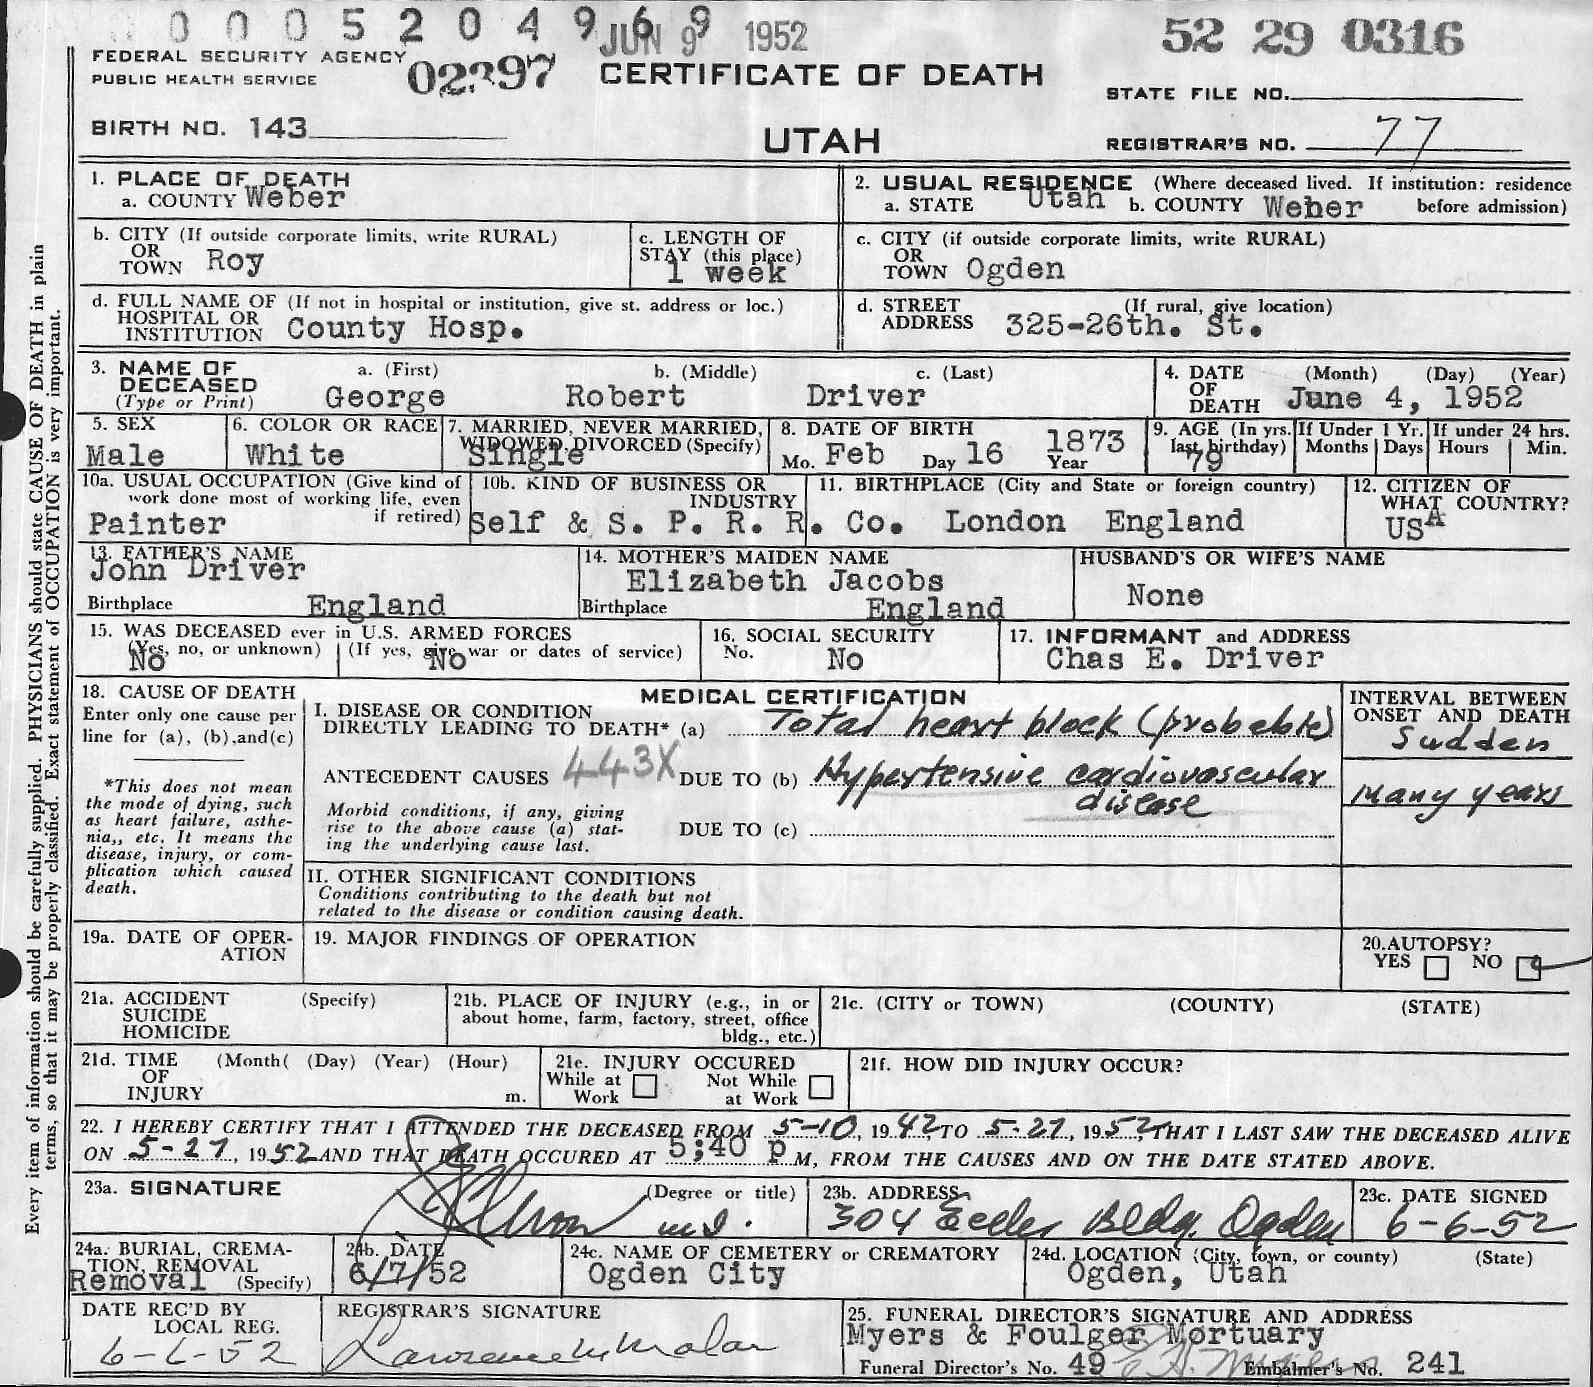 0 0 0 5 2 0 4 9 6 9
JUN 9 1952
52 29 0316
FEDERAL SECURITY AGENCY
PUBLIC HEALTH SERVICE
02397
CERTIFICATE OF DEATH
STATE FILE NO.
BIRTH NO. 143
UTAH
REGISTRAR'S NO. 77
Every item of information should be carefully supplied. PHYSICIANS should state CAUSE OF DEATH in plain
terms, so that it may be properly classified. Exact statement of OCCUPATION is very important.
1. PLACE OF DEATH
a. COUNTY Weber
2. USUAL RESIDENCE (Where deceased lived. If institution: residence
a. STATE Utah b. COUNTY Weber before admission)
b. CITY (If outside corporate limits, write RURAL)
OR
TOWN Roy
c. LENGTH OF
STAY (this place)
1 week
c. CITY (if outside corporate limits, write RURAL)
OR
TOWN Ogden
d. FULL NAME OF (If not in hospital or institution, give st. address or loc.)
HOSPITAL OR
INSTITUTION County Hosp.
d. STREET (If rural, give location)
ADDRESS 325-26th. St.
3. NAME OF
DECEASED
(Type or Print)
a. (First) b. (Middle) c. (Last)
George Robert Driver
4. DATE (Month) (Day) (Year)
OF
DEATH June 4, 1952
5. SEX
Male
6. COLOR OR RACE
White
7. MARRIED, NEVER MARRIED,
WIDOWED, DIVORCED (Specify)
Single
8. DATE OF BIRTH
Mo. Feb Day 16 1873 Year
9. AGE (In yrs.
last birthday)
79
If Under 1 Yr.
Months Days
If under 24 hrs.
Hours Min.
10a. USUAL OCCUPATION (Give kind of
work done most of working life, even
if retired)
Painter
10b. KIND OF BUSINESS OR
INDUSTRY
Self & S. P. R. R. Co.
11. BIRTHPLACE (City and State or foreign country)
London England
12. CITIZEN OF
WHAT COUNTRY?
USA
13. FATHER'S NAME
John Driver
Birthplace England
14. MOTHER'S MAIDEN NAME
Elizabeth Jacobs
Birthplace England
HUSBAND'S OR WIFE'S NAME
None
15. WAS DECEASED ever in U.S. ARMED FORCES
(Yes, no, or unknown) (If yes, give war or dates of service)
No No
16. SOCIAL SECURITY
No. No
17. INFORMANT and ADDRESS
Chas E. Driver
18. CAUSE OF DEATH
Enter only one cause per
line for (a), (b),and(c)
*This does not mean
the mode of dying, such
as heart failure, asthe-
nia,, etc. It means the
disease, injury, or com-
plication which caused
death.
MEDICAL CERTIFICATION
I. DISEASE OR CONDITION
DIRECTLY LEADING TO DEATH* (a) Total heart block (probable)
ANTECEDENT CAUSES 443X DUE TO (b) Hypertensive cardiovascular
disease
Morbid conditions, if any, giving
rise to the above cause (a) stat-
ing the underlying cause last.
DUE TO (c)
INTERVAL BETWEEN
ONSET AND DEATH
Sudden
Many years
II. OTHER SIGNIFICANT CONDITIONS
Conditions contributing to the death but not
related to the disease or condition causing death.
19a. DATE OF OPER-
ATION
19. MAJOR FINDINGS OF OPERATION
20.AUTOPSY?
YES NO
21a. ACCIDENT (Specify)
SUICIDE
HOMICIDE
21b. PLACE OF INJURY (e.g., in or
about home, farm, factory, street, office
bldg., etc.)
21c. (CITY or TOWN) (COUNTY) (STATE)
21d. TIME (Month( (Day) (Year) (Hour)
OF
INJURY m.
21e. INJURY OCCURED
While at Work Not While at Work
21f. HOW DID INJURY OCCUR?
22. I HEREBY CERTIFY THAT I ATTENDED THE DECEASED FROM 5-10, 1942, TO 5-27, 1952, THAT I LAST SAW THE DECEASED ALIVE
ON 5-27, 1952 AND THAT DEATH OCCURED AT 5;40 p M, FROM THE CAUSES AND ON THE DATE STATED ABOVE.
23a. SIGNATURE (Degree or title)
M.D.
23b. ADDRESS
304 Eccles Bldg. Ogden
23c. DATE SIGNED
6-6-52
24a. BURIAL, CREMA-
TION, REMOVAL
Removal (Specify)
24b. DATE
6/7/52
24c. NAME OF CEMETERY or CREMATORY
Ogden City
24d. LOCATION (City, town, or county) (State)
Ogden, Utah
DATE REC'D BY
LOCAL REG.
6-6-52
REGISTRAR'S SIGNATURE
Lawrence M Malan
25. FUNERAL DIRECTOR'S SIGNATURE AND ADDRESS
Myers & Foulger Mortuary
Funeral Director's No. 49 Embalmer's No. 241